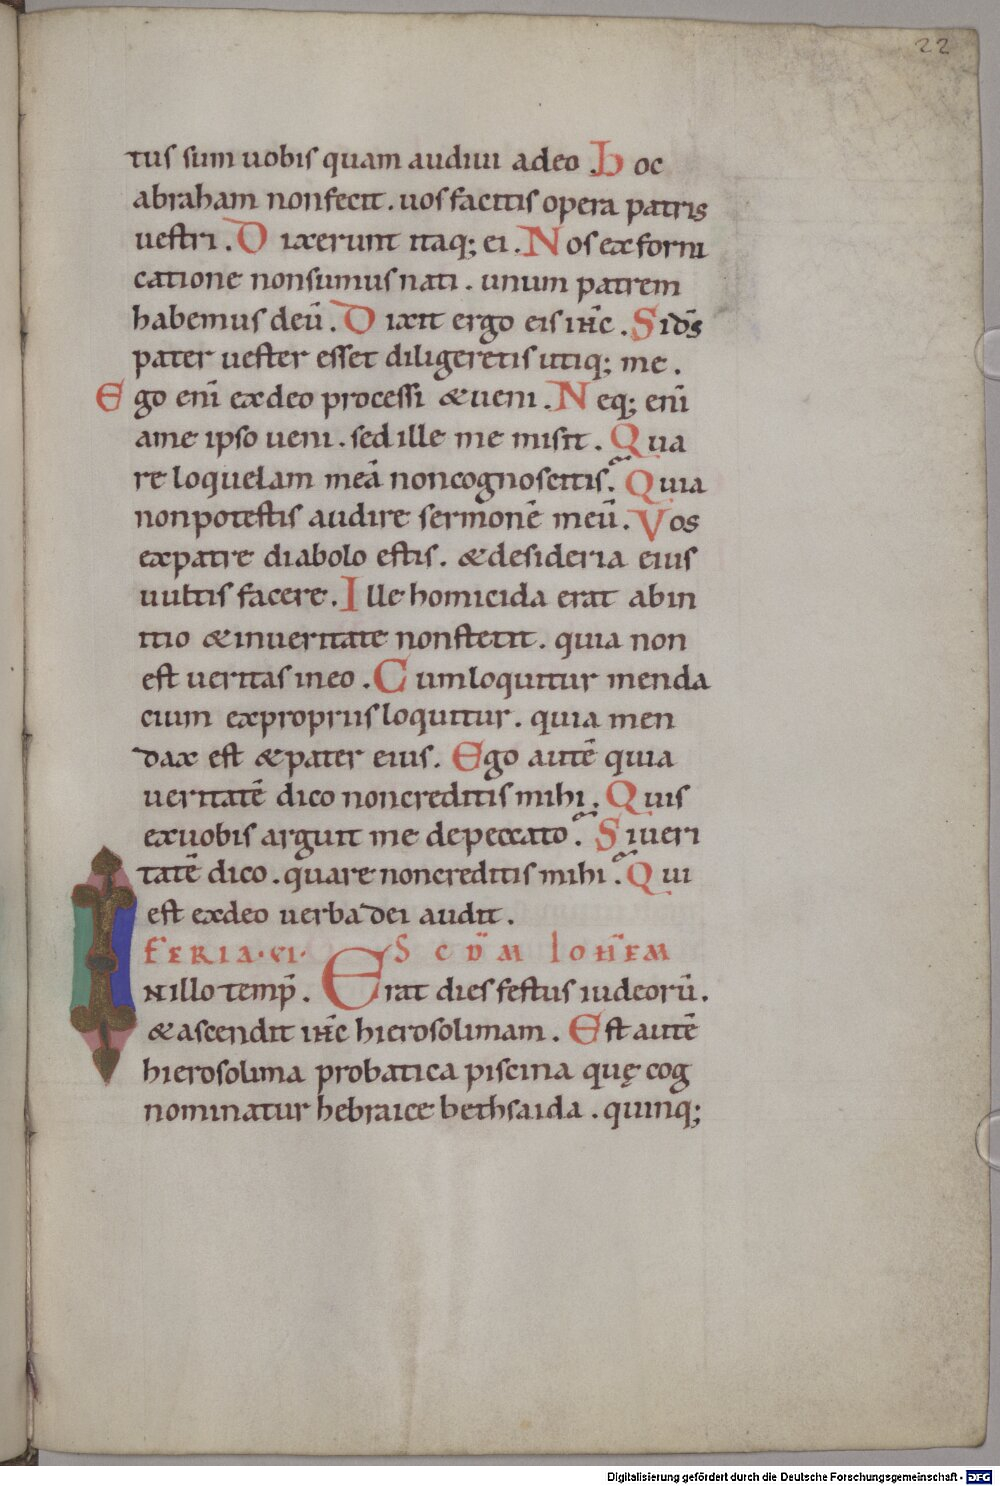 22
tus sum uobis quam audiui adeo. Hoc
abraham nonfecit. uos facitis opera patris
uestri. Dixerunt itaq; ei. Nos ex forni
catione nonsumus nati. unum patrem
habemus deū. Dixit ergo eis ihc̄. Si ds̄
pater uester esset diligeretis utiq; me.
Ego enī exdeo processi &ueni. Neq; enī
ame ipso ueni. sed ille me misit. Qua
re loquelam meā noncognoscitis. Quia
nonpotestis audire sermonē meū. Vos
expatre diabolo estis. &desideria eius
uultis facere. Ille homicida erat abin
itio &inueritate nonstetit. quia non
est ueritas ineo. Cumloquitur menda
cium expropriis loquitur. quia men
dax est &pater eius. Ego autē quia
ueritatē dico noncreditis mihi. Quis
exuobis arguit me depeccato. Si ueri
tatē dico. quare noncreditis mihi. Qui
est exdeo uerba dei audit.
FERIA·VI· SCD̄M IOHĒM
IN illo temp̄. Erat dies festus iudeorū.
&ascendit ihc̄ hierosolimam. Est autē
hierosolima probatica piscina quę cog
nominatur hebraice bethsaida. quinq;
Digitalisierung gefördert durch die Deutsche Forschungsgemeinschaft - DFG